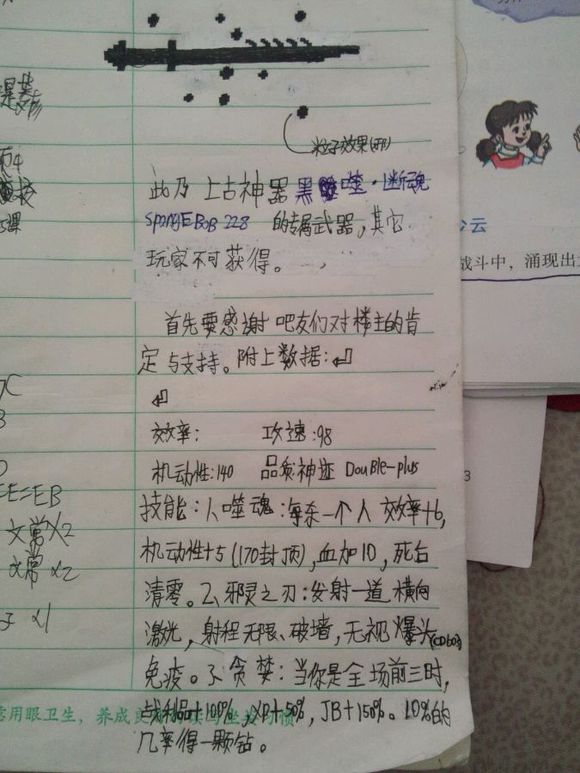 粒子效果(开)
此乃 上古神器 黑噬·断魂
SpongEBOB 228 的专属武器,其它
玩家不可获得。
首先要感谢 吧友们对楼主的肯
定与支持。附上数据:
效率: 攻速:98
机动性:140 品质神迹 DouBle-plus
技能:1、噬魂:每杀一个人 效率+6,
机动性+5(170封顶),血加10,死后
清零。2、邪灵之刃:发射一道 横向
激光,射程无限、破墙,无视 爆头(CD60s)
免疫。3、贪婪:当你是全场前三时,
战利品+100%,XP+50%,JB+150%。10%的
几率得一颗钻。
用眼卫生,养成
C
B
E=EB
文常X2
文常x2
子 x1
公云
战斗中,涌现出
3